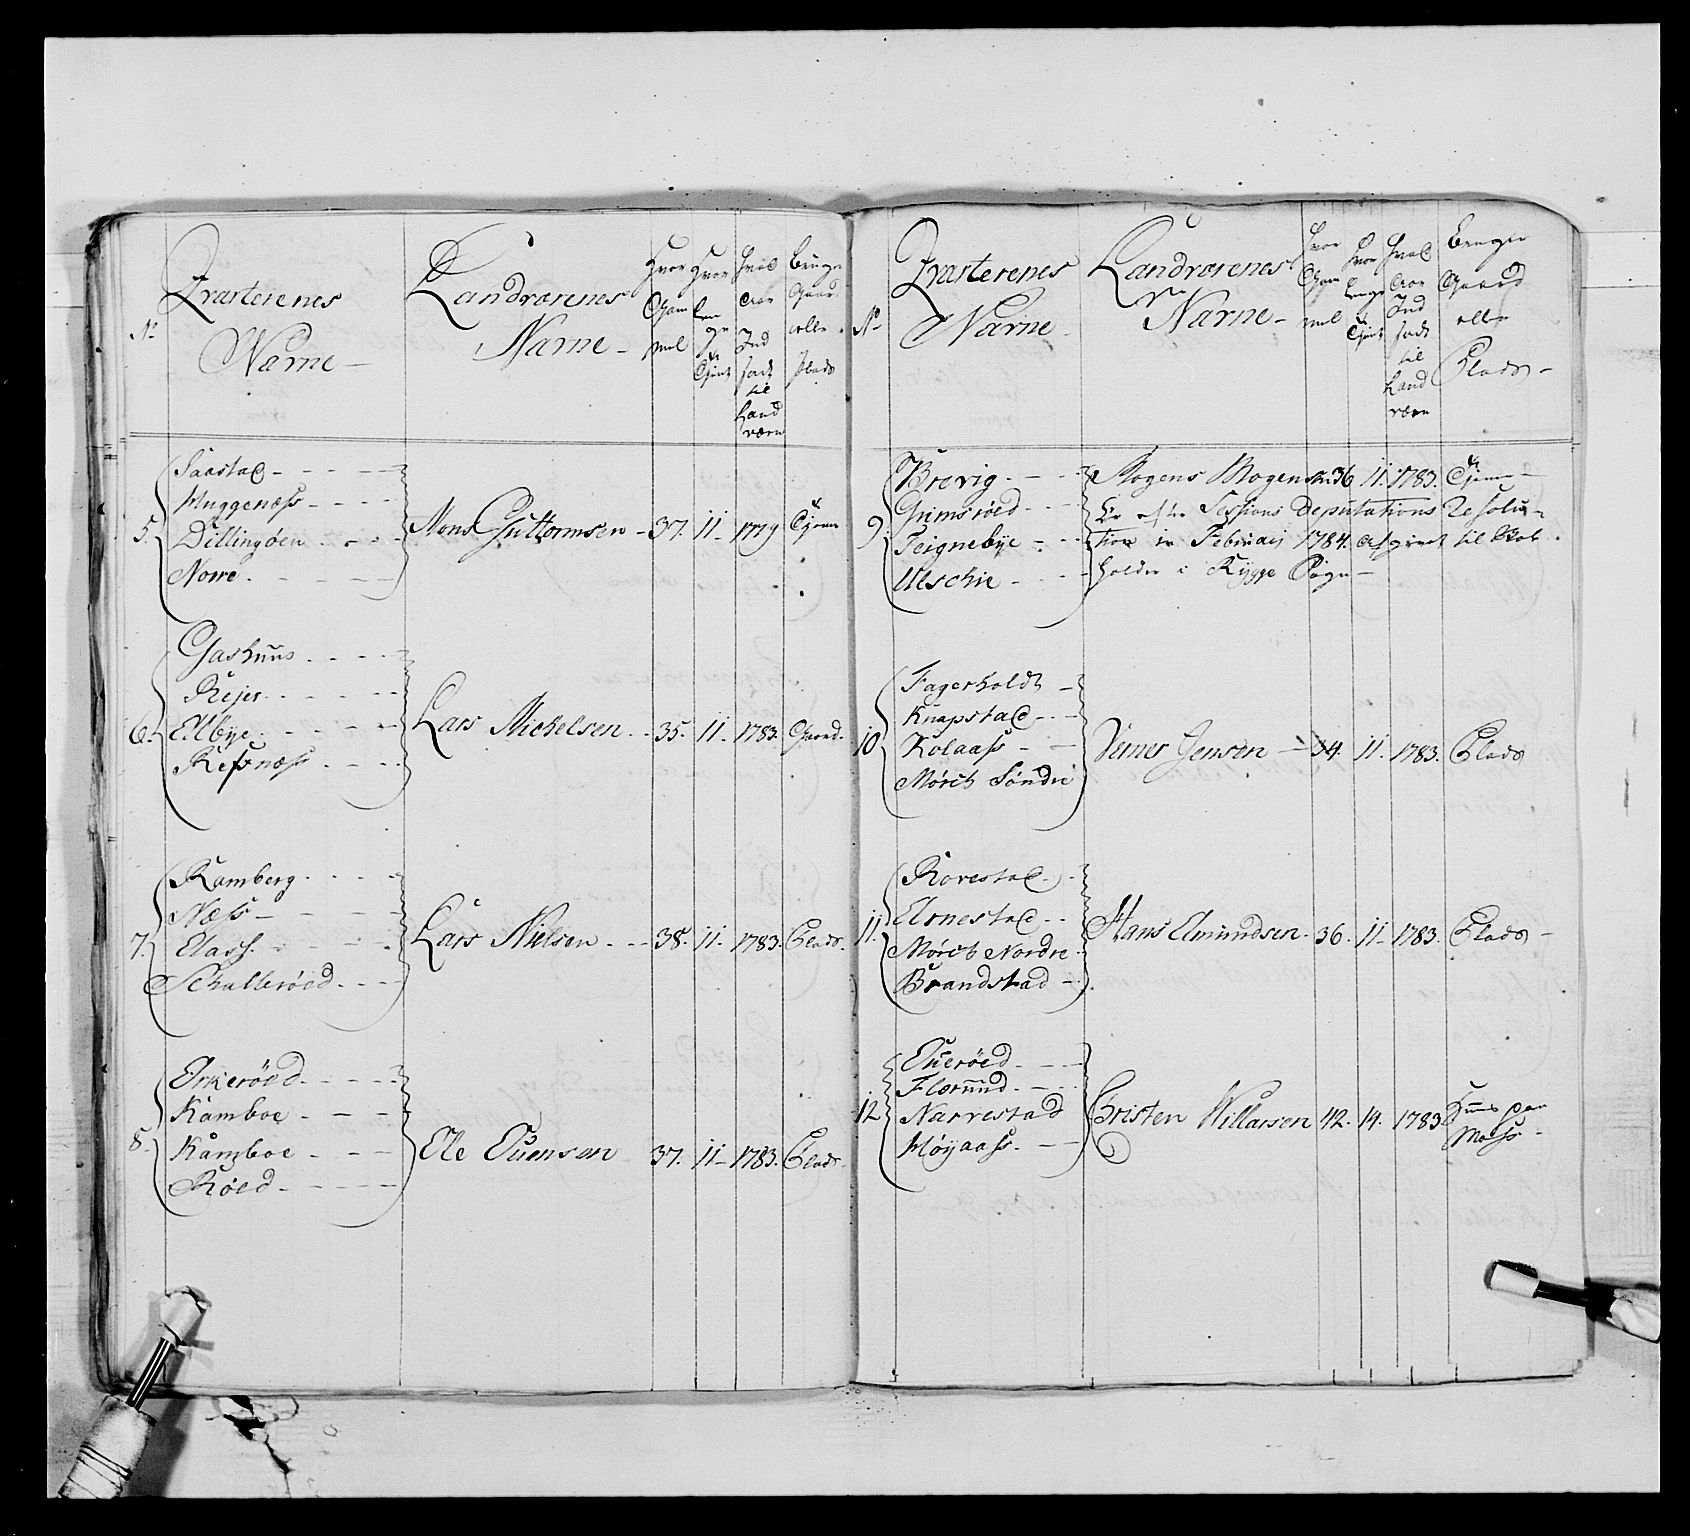 No
Qvarterenes
Nafne
Landværenes
Nafne
Hvor
Gam
mel
Hvor
len
ge
Tjent
Hvad
Aar
Ind
sadt
til
Land
værn
Bruger
Gaard
eller
Plads
5.
Saastad
Huggenæss
Dillingøen
Norre
Mons Guttormsen 37. 11. 1779 Tjener
6.
Gashuus
Rejer
Ellbye
Refsnæss
Lars Michelsen 35. 11. 1783. Gaard.
7.
Ramberg
Næss
Elass
Schallerøed
Lars Nielsen 38. 11. 1783. Plads.
8.
Orkerøed
Kamboe
Kamboe
Røed
Ole Svensen 37. 11. 1783. Plads.
No
Qvarterenes
Nafne
Landværenes
Nafne
Hvor
Gam
mel
Hvor
lenge
Tjent
Hvad
Aar
Ind
sadt
til
Land
værn
Bruger
Gaard
eller
Plads
9.
Brevig
Grimsrøed
Teignebye
Ulschie
Mogens Mogensen 36 11. 1783. Tjener
Er efter Sessions Deputations Resolu-
tion i Februarj 1784. afgivet til
holder i Rygge Sogn
10
Fagerholdt
Knapstad
Kolaass
Mørch Søndre
Verner Jensen 34. 11. 1783. Plads
11.
Rovestad
Elnestad
Mørch Nordre
Brandstad
Hans Elmundsen 36. 11. 1783. Plads
12
Ouerøed
Flæsund
Narrestad
Høyaass
Christen Willarsen 42. 14. 1783 Huus paa
Moss